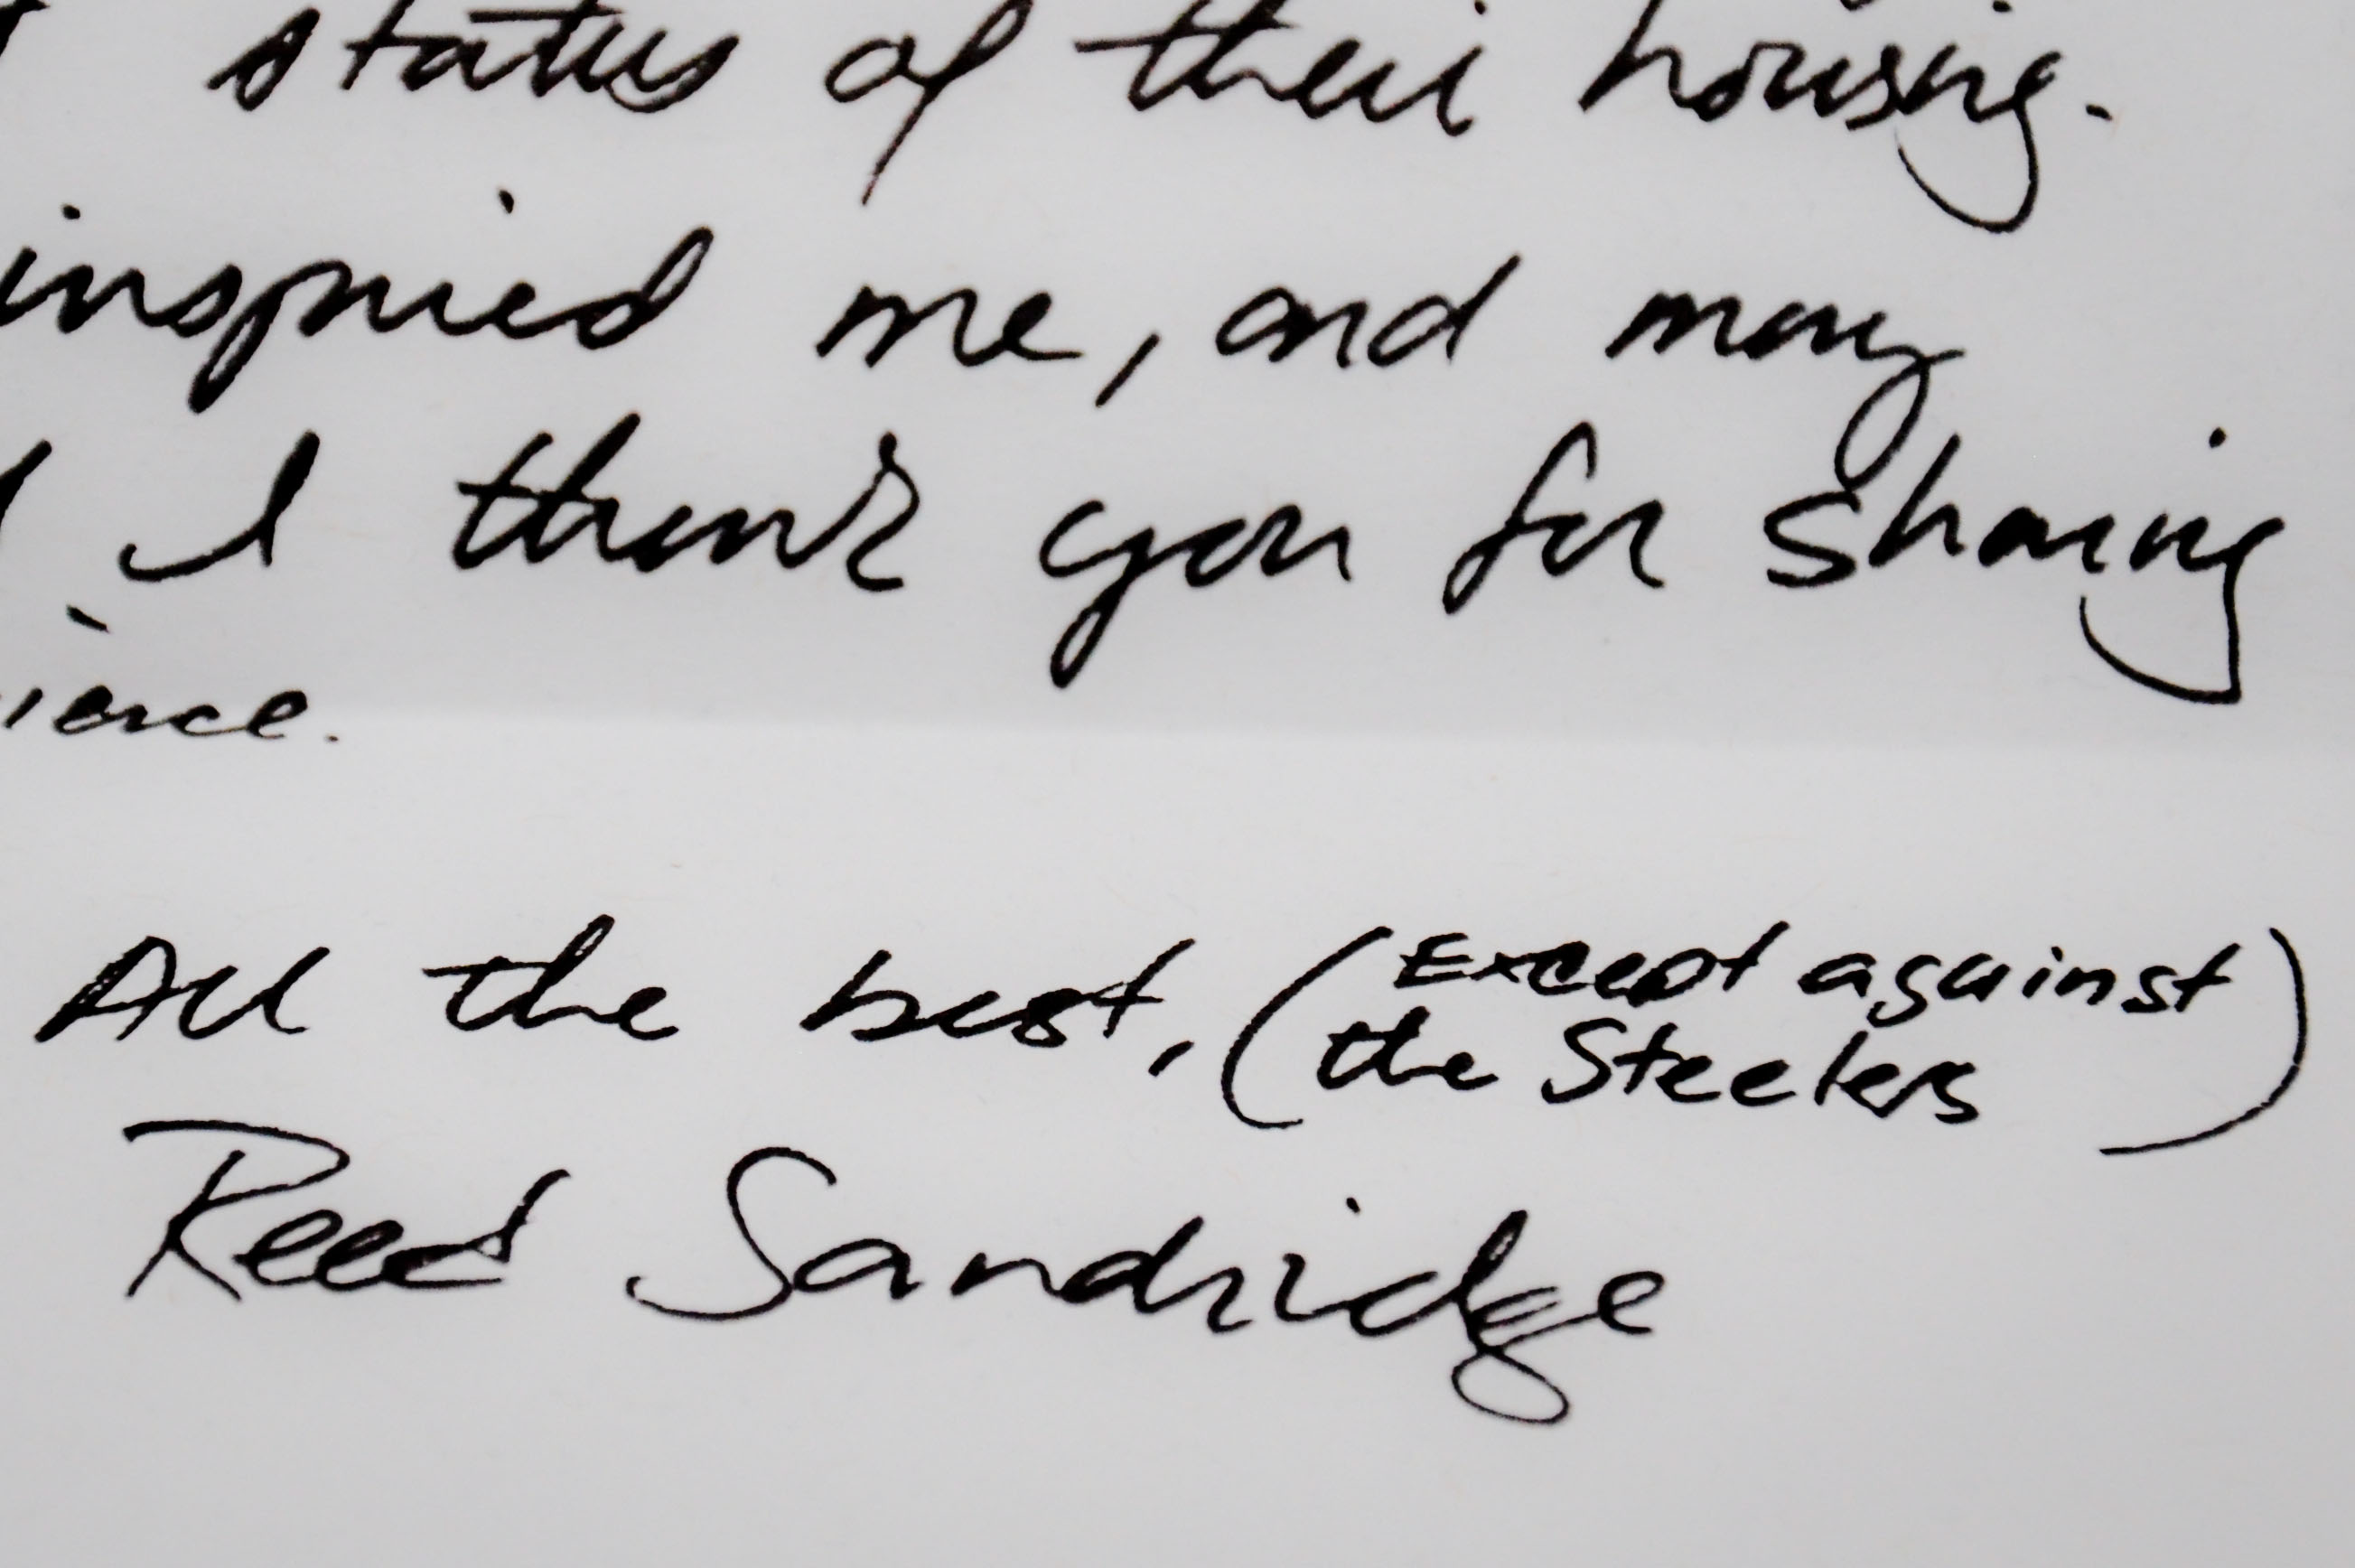 status of their housing.
inspired me, and many
I thank you for sharing
ience.
All the best, (Except against
the Steelers)
Reed Sandridge